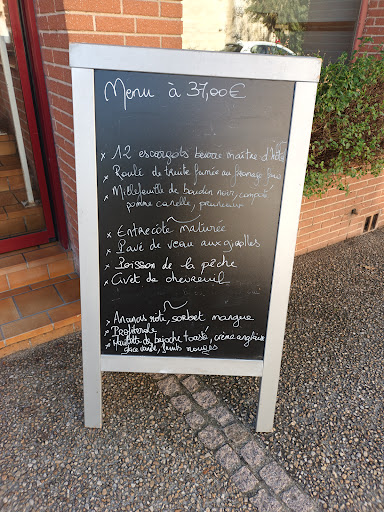 Menu à 37,00€
x 12 escargots beurre maître d'hôtel
x Roulé de truite fumée au fromage frais
x Millefeuille de boudin noir, compoté
pomme canelle, pruneaux
x Entrecôte maturée
x Pavé de veau aux girolles
x Poisson de la pêche
x Civet de chevreuil
x Ananas rôti, sorbet mangue
x Profiterole
x de brioche toasté, crème anglaise
glace vanille, fruits rouges